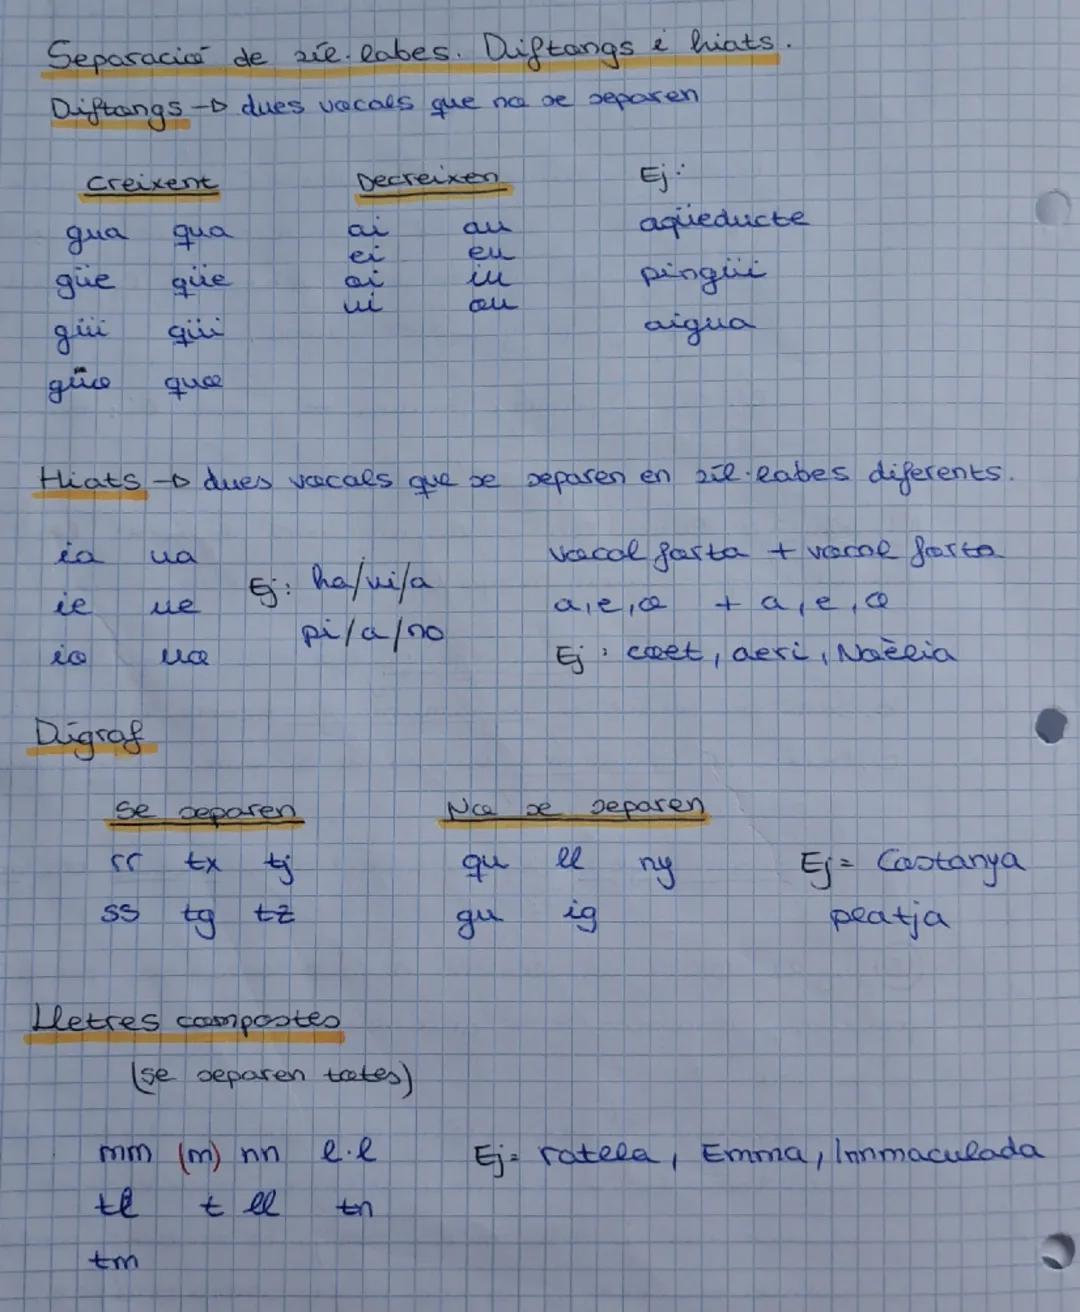 Separació de síl·labes. Diftongs i hiats.
Diftongs → dues vocals que no se separen
Creixent Decreixen Ej:
gua qua ai au aqüeducte
ei eu
güe qüe oi iu pingüi
ui ou
güi qüi aigua
güo quo
Hiats → dues vocals que se separen en síl·labes diferents.
ia ua vocal forta + vocal forta
Ej: ha/vi/a
ie ue a, e, o + a, e, o
pi/a/no
io uo Ej: coet, aeri, Noèlia
Dígraf
Se separen No se separen
rr tx tj qu ll ny Ej= Castanya
ss tg tz gu ig platja
Lletres compostes
(se separen totes)
mm (m) nn l·l Ej= ratlla, Emma, Inmaculada
tl t ll tn
tm